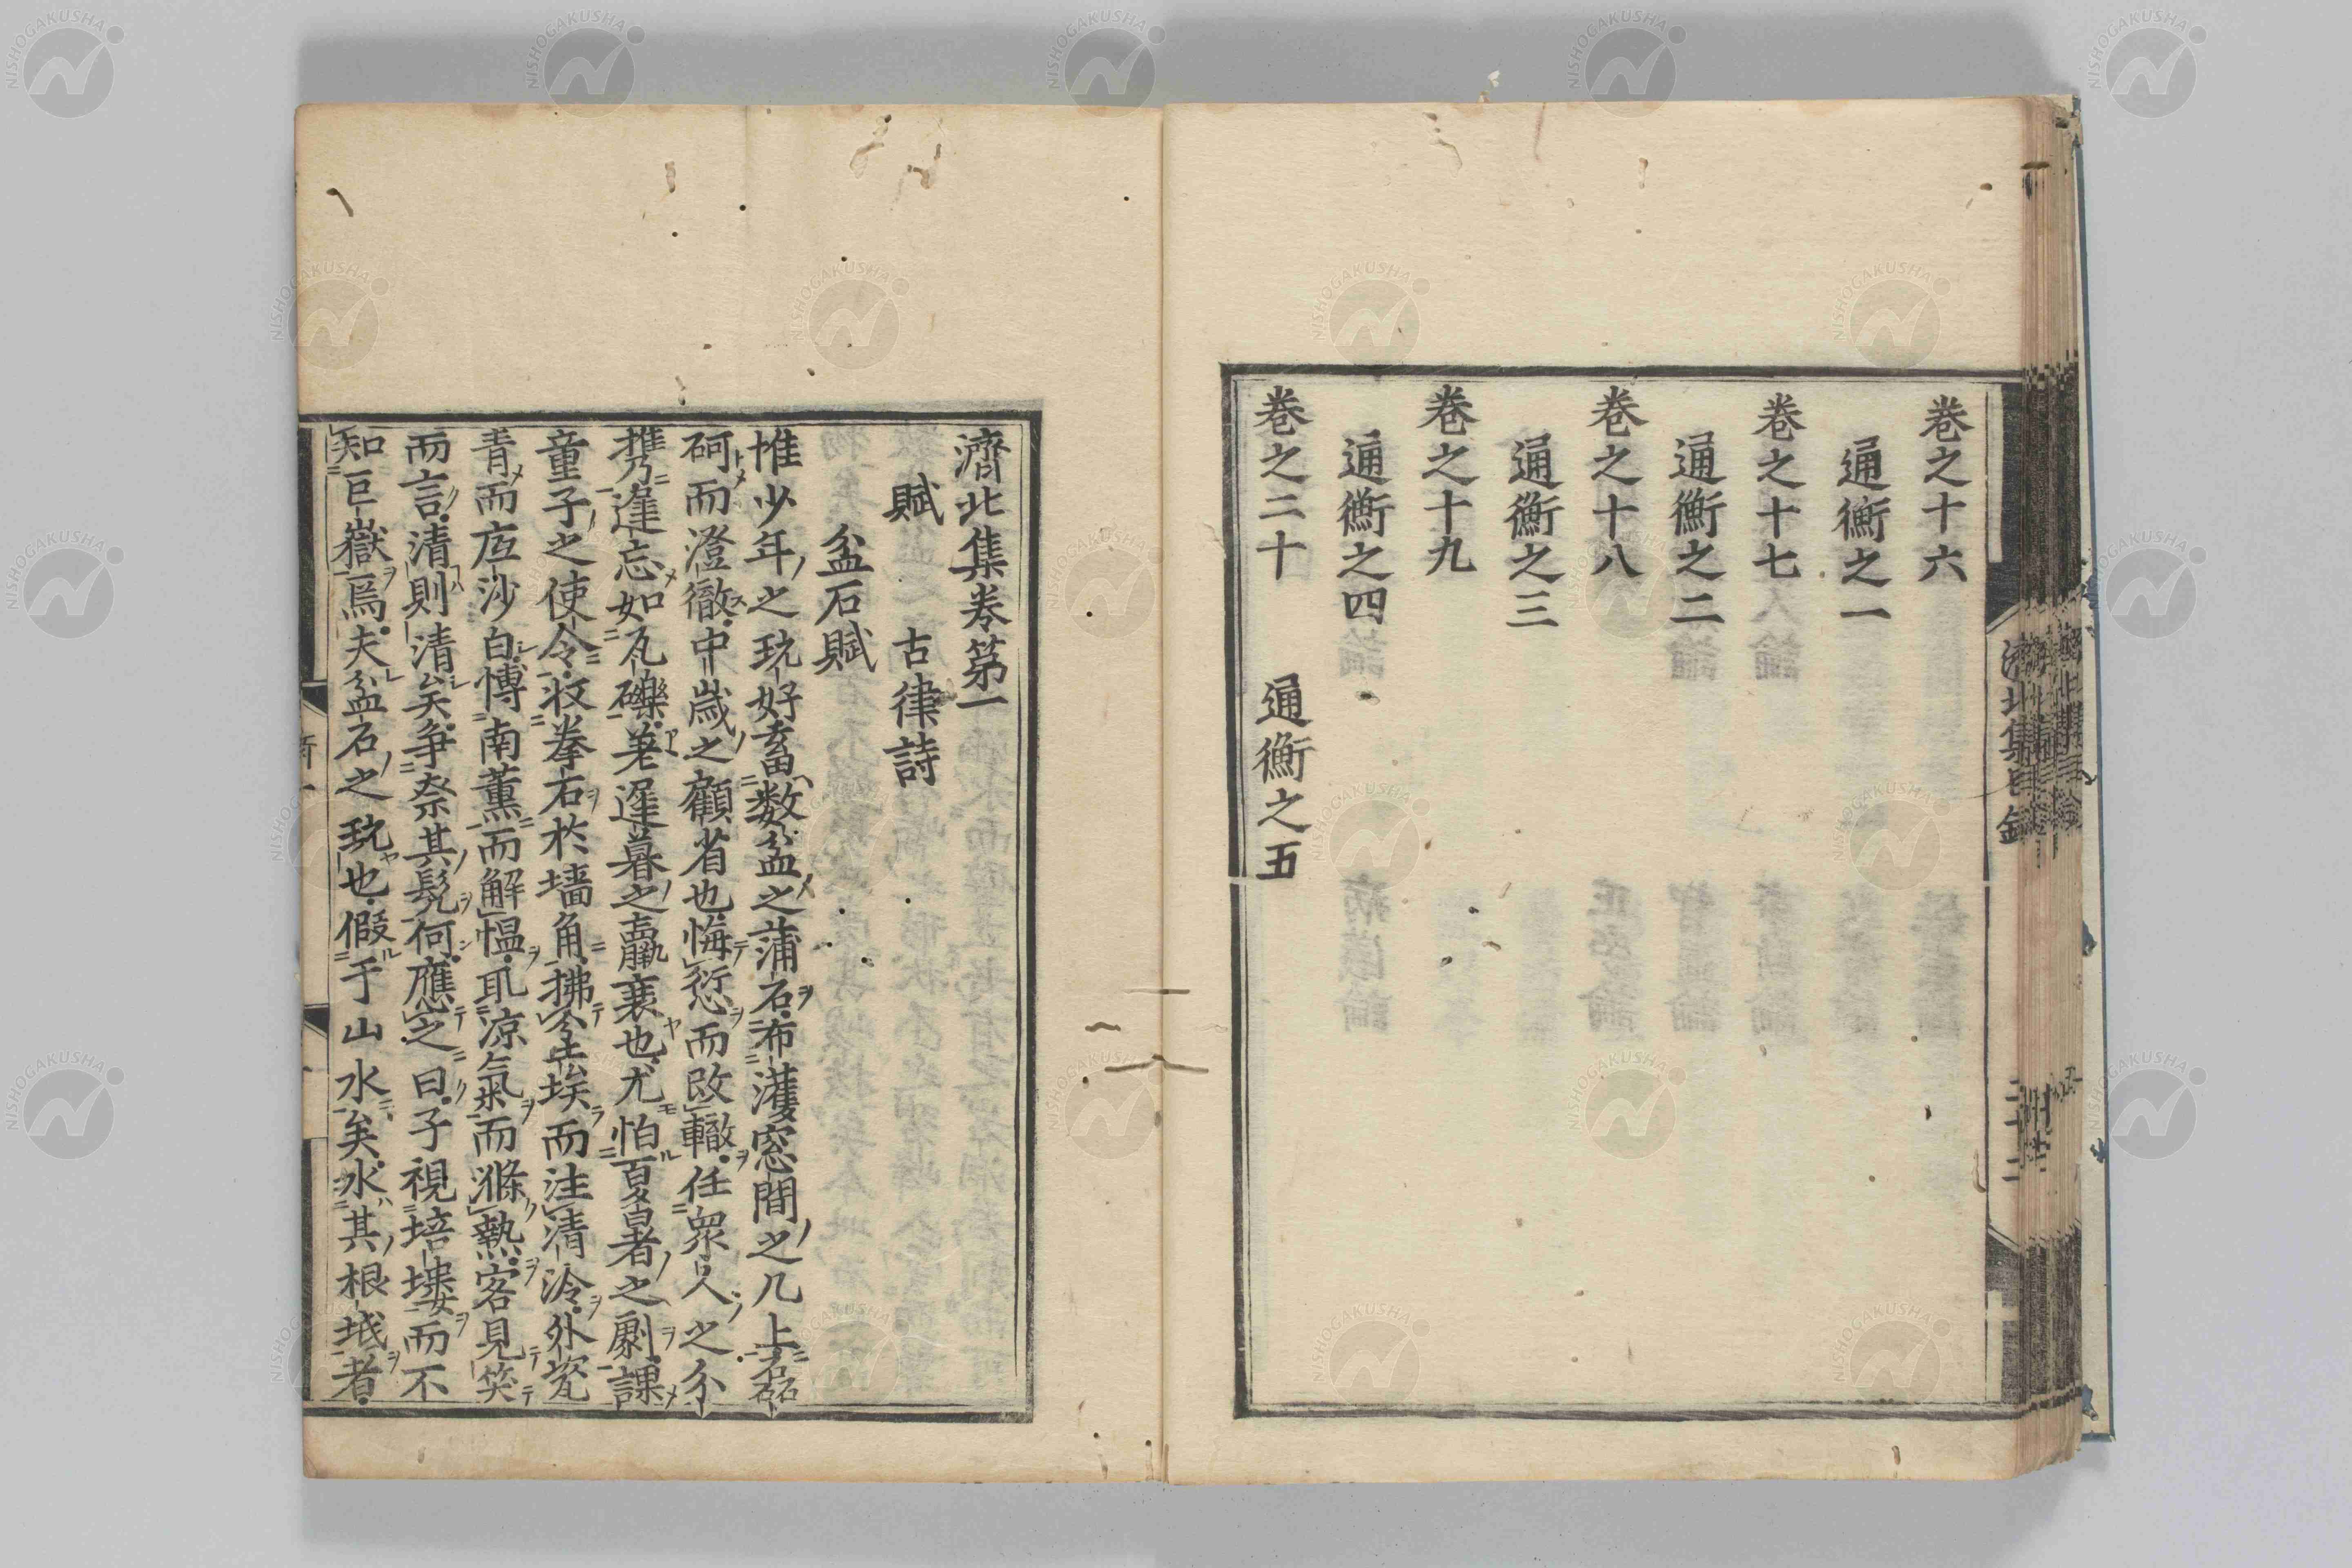 卷之十六
通衡之一
卷之十七
通衡之二
卷之十八
通衡之三
卷之十九
通衡之四
卷之二十　通衡之五
濟北集目錄
濟北集卷第一
賦　古律詩
盆石賦
惟少年之玩好畜數盆之蒲石布濩窓間之几上磊
砢而澄徹中歳之顧省也悔愆而改轍任衆人之分
携乃遑忘如瓦礫耄遲暮之羸衰也尤怕夏暑者之劇課
童子之使令收拳石於墙角拂坌埃而注清泠外瓷
青而底沙白慱南薫而解愠耴凉氣而滌熱客見笑
而言清則清矣争奈其髡何應之曰子視培塿而不
知巨嶽焉夫盆石之玩也假于山水矣水其根城者
NISHOGAKUSHA